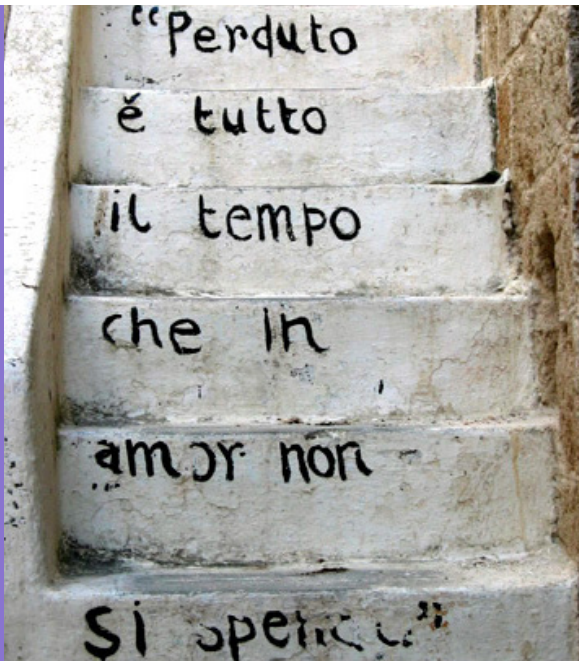 “Perduto
è tutto
il tempo
che in
amor non
Si